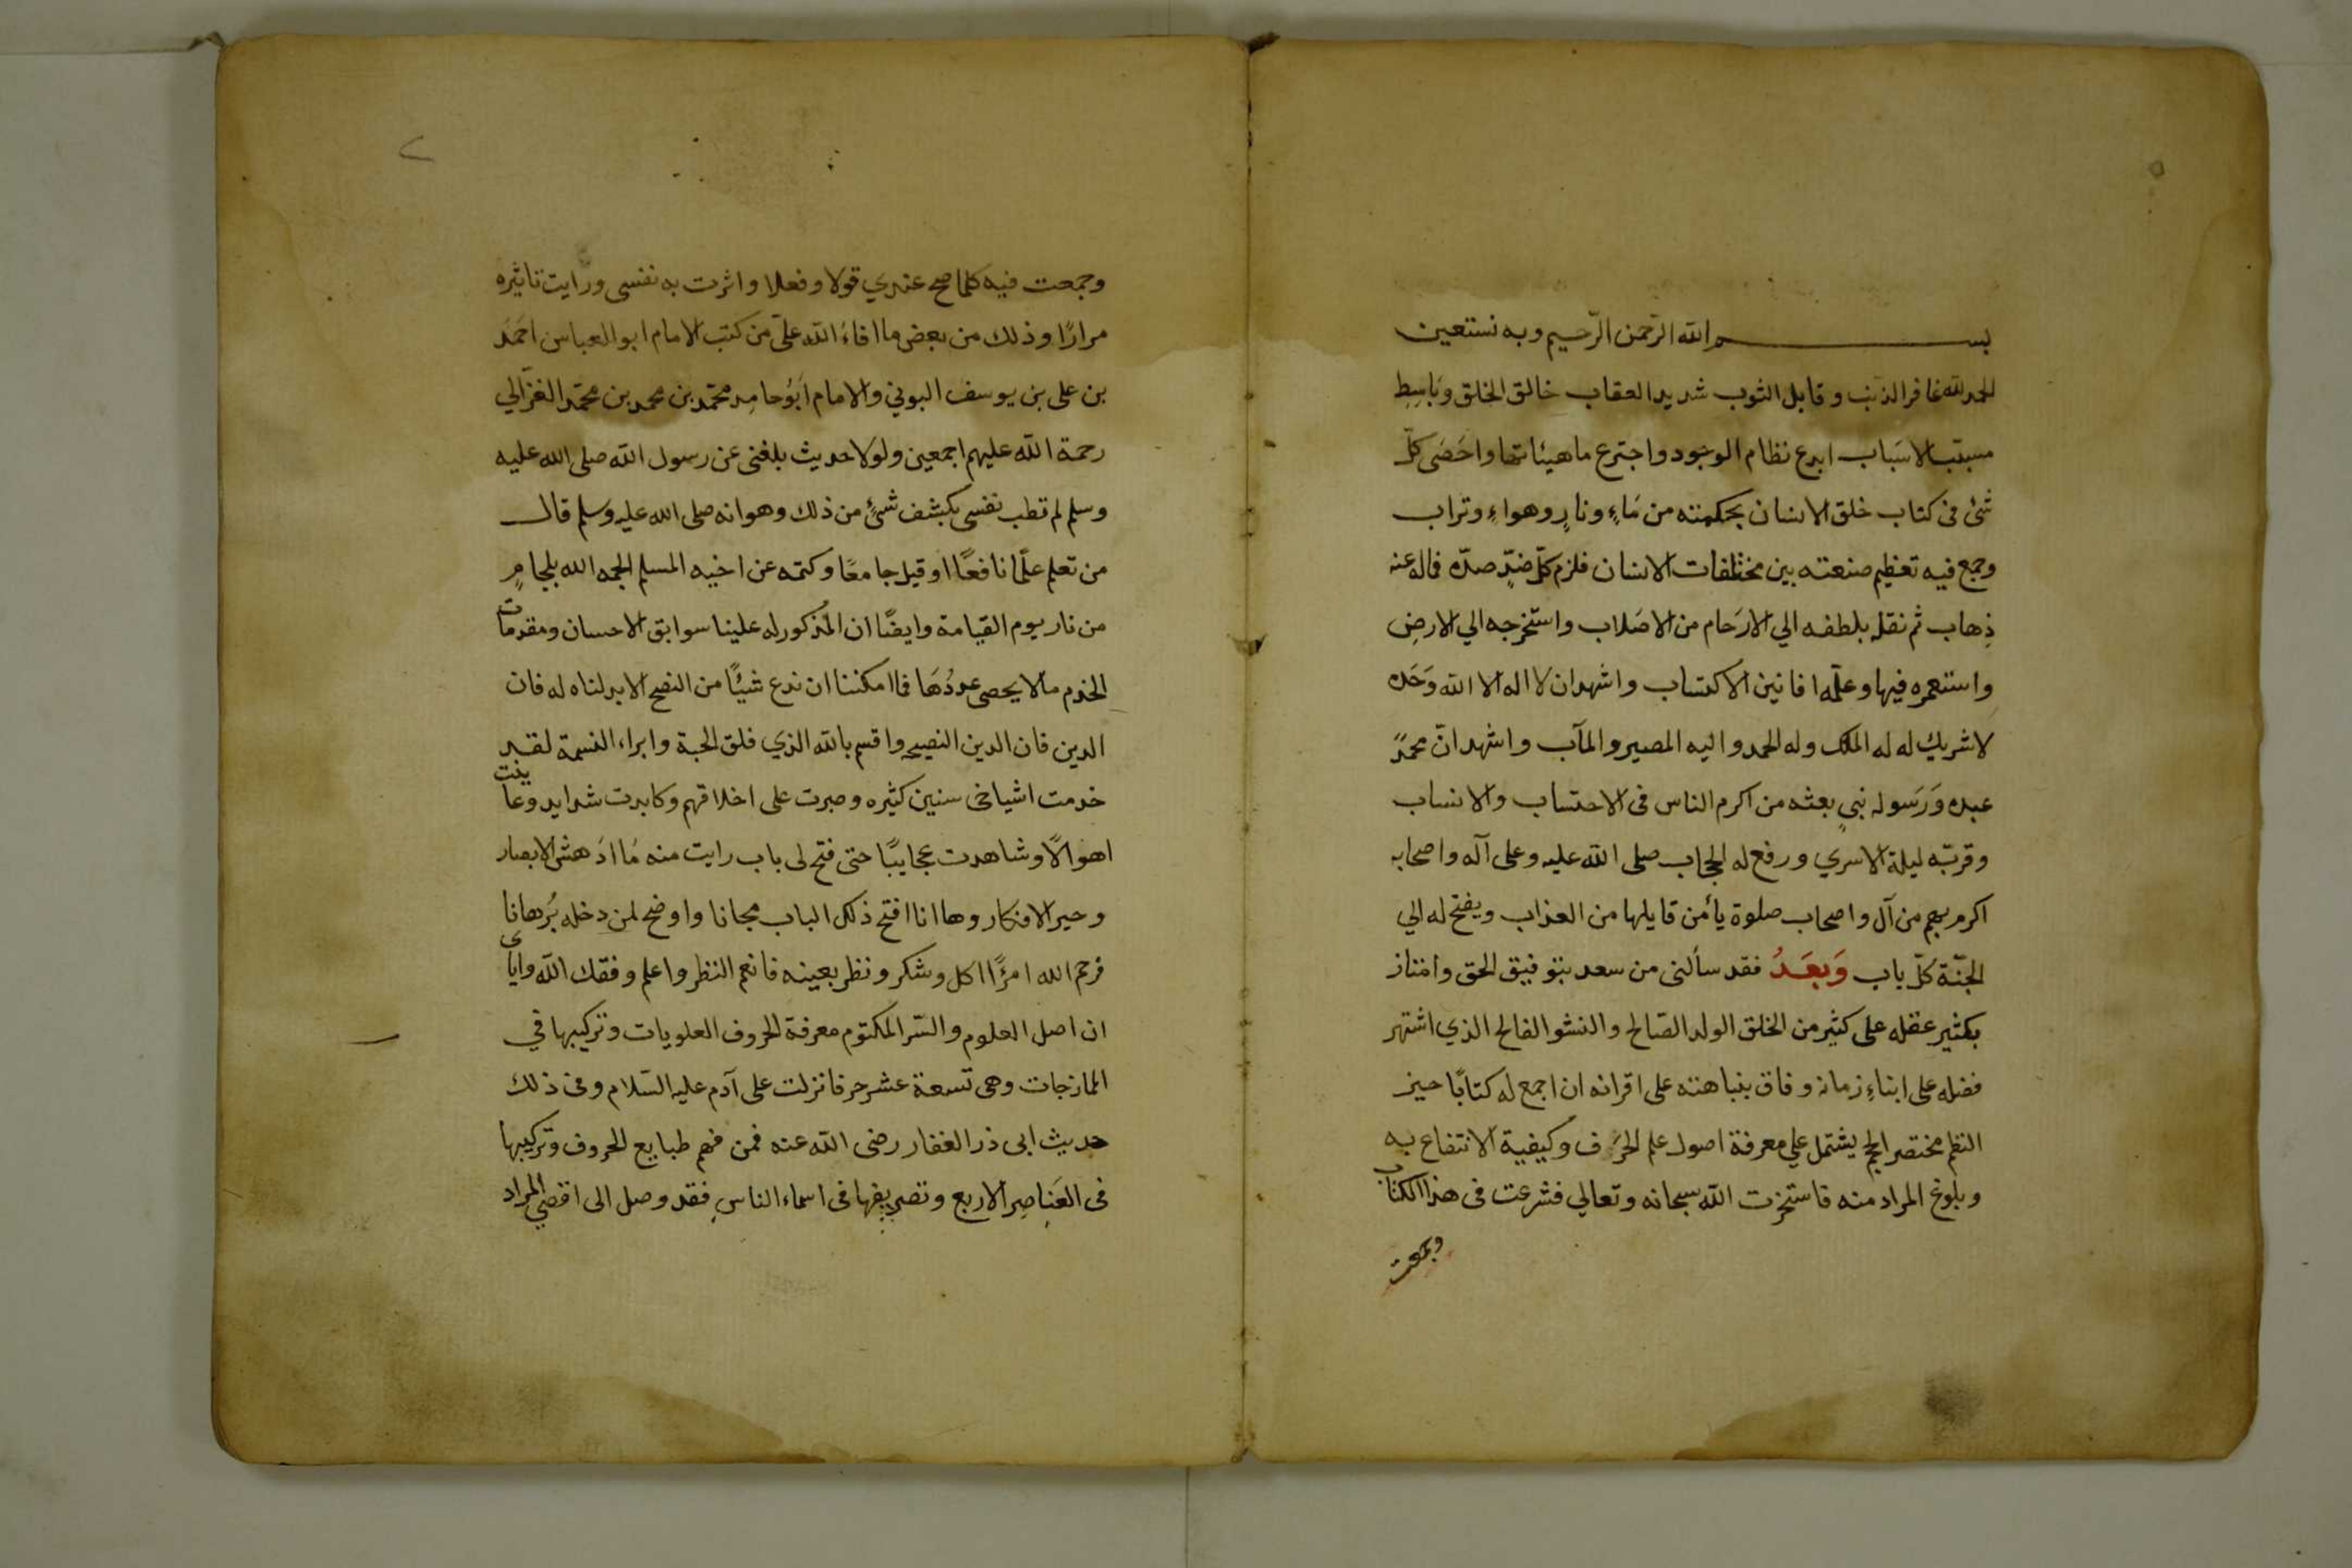 بســـــم الله الرّحمن الرّحيم وبه نستعين
الحمد لله غافر الذنب وقابل التوب شديد العقاب خالق الخلق وبَاسِطِ
مسبّب الاسَباب ابدع نظام الوجود واخترع ماهيئاتها واحَصَى كلّ
شئ فى كتاب خلق الانسان بحكمته من مَاءٍ ونارٍ وهواءِ وتراب
وجمع فيه تعظيم صنعته بين مختلفات الانسان فلزم كلّ ضدٍّ ضدّه فماله عنه
ذِهاب ثم نقله بلطفه الي الارَحام من الاصَلاب واستخرجه الي الارضِ
واستعمره فيها وعلّمه افانين الاكتساب واشهد ان لا اله الا الله وَحَده
لا شريك له له الملك وله الحمد واليه المصير والمآب واشهد انّ محمدً
عبده وَرَسوله نبيٍ بعثه من اكرم الناس فى الاحتساب والانساب
وقربّه ليلة الاسري ورفع له الحجاب صلى الله عليه وعلى آله واصحابه
اكرم بهم من آل واصحاب صلوة يأمن قايلها من العذاب ويفتح له الي
الجنّة كلّ باب وَبعَدُ فقد سألنى من سعد بتوفيق الحق وامتاز
بكثير عقله على كثير من الخلق الولد الصّالح والنشو الفالح الذي اشتهر
فضله على ابناءِ زمانه وفاق بنباهته على اقرانه ان اجمع له كتابًا حيز
النظم مختصر الحجم يشتمل علي معرفة اصول علم الحرَف وكيفية الانتفاع به
وبلوغ المراد منه فاستخرت الله سبحانه وتعالي فشرعت فى هذا الكتاب
وجمعت
٢
وجمعت فيه كلما صح عندي قولا وفعلا واثرت به نفسى ورايت تاثيره
مرارًا وذلك من بعض ما افاءَ الله علىّ من كتب الامام ابو العباس احمَدَ
بن على بن يوسف البوني والامام ابَوُحامِد محمّد بن محمد بن محمّد الغزّالي
رحمة الله عليهم اجمعين ولولا حديث بلغنى عن رسول الله صلى الله عليه
وسلم لم تطب نفسى بكشف شئٍ من ذلك وهو انه صلى الله عليه وسلم قال
من تعلم علمًا نافعًا اوقيل جامعًا وكتمه عن اخيه المسلم الجمه الله بلجامٍ
من نار يوم القيامة وايضًا ان المذكور له علينا سوابق الاحسان ومقدمات
الخدم مالا يحصى عددُهَا فما امكننا ان ندع شيئًا من النصح الا بدلناه له فان
الدين فان الدين النصيحه واقسم بالله الذي فلق الحبة وابراء النسمة لقد
خدمت اشياخى سنين كثيره وصبرت على اخلاقهم وكابدت شدايد وعاينت
اهوالًا وشاهدت عجايبًا حتى فتح لى باب رايت منه مَا ادَهش الابصار
وحير الافكار وها انا افتح ذلك الباب مجانا واوضح لمن دخله بُرهانا
فرحم الله امرًا اكل وشكر ونظر بعينه فانعم النظر واعلم وفقك الله واياى
ان اصل العلوم والسّر المكتوم معرفة الحروف العلويات وتركيبها في
الممازجات وهى تسعة عشر حرفا نزلت على آدم عليه السّلام وفى ذلك
حديث ابى ذر الغفار رضى الله عنه فمن فهم طبايع الحروف وتركيبها
فى العَناصِر الاربع وتصريفها فى اسماء الناسِ فقد وصل الى اقصي المراد